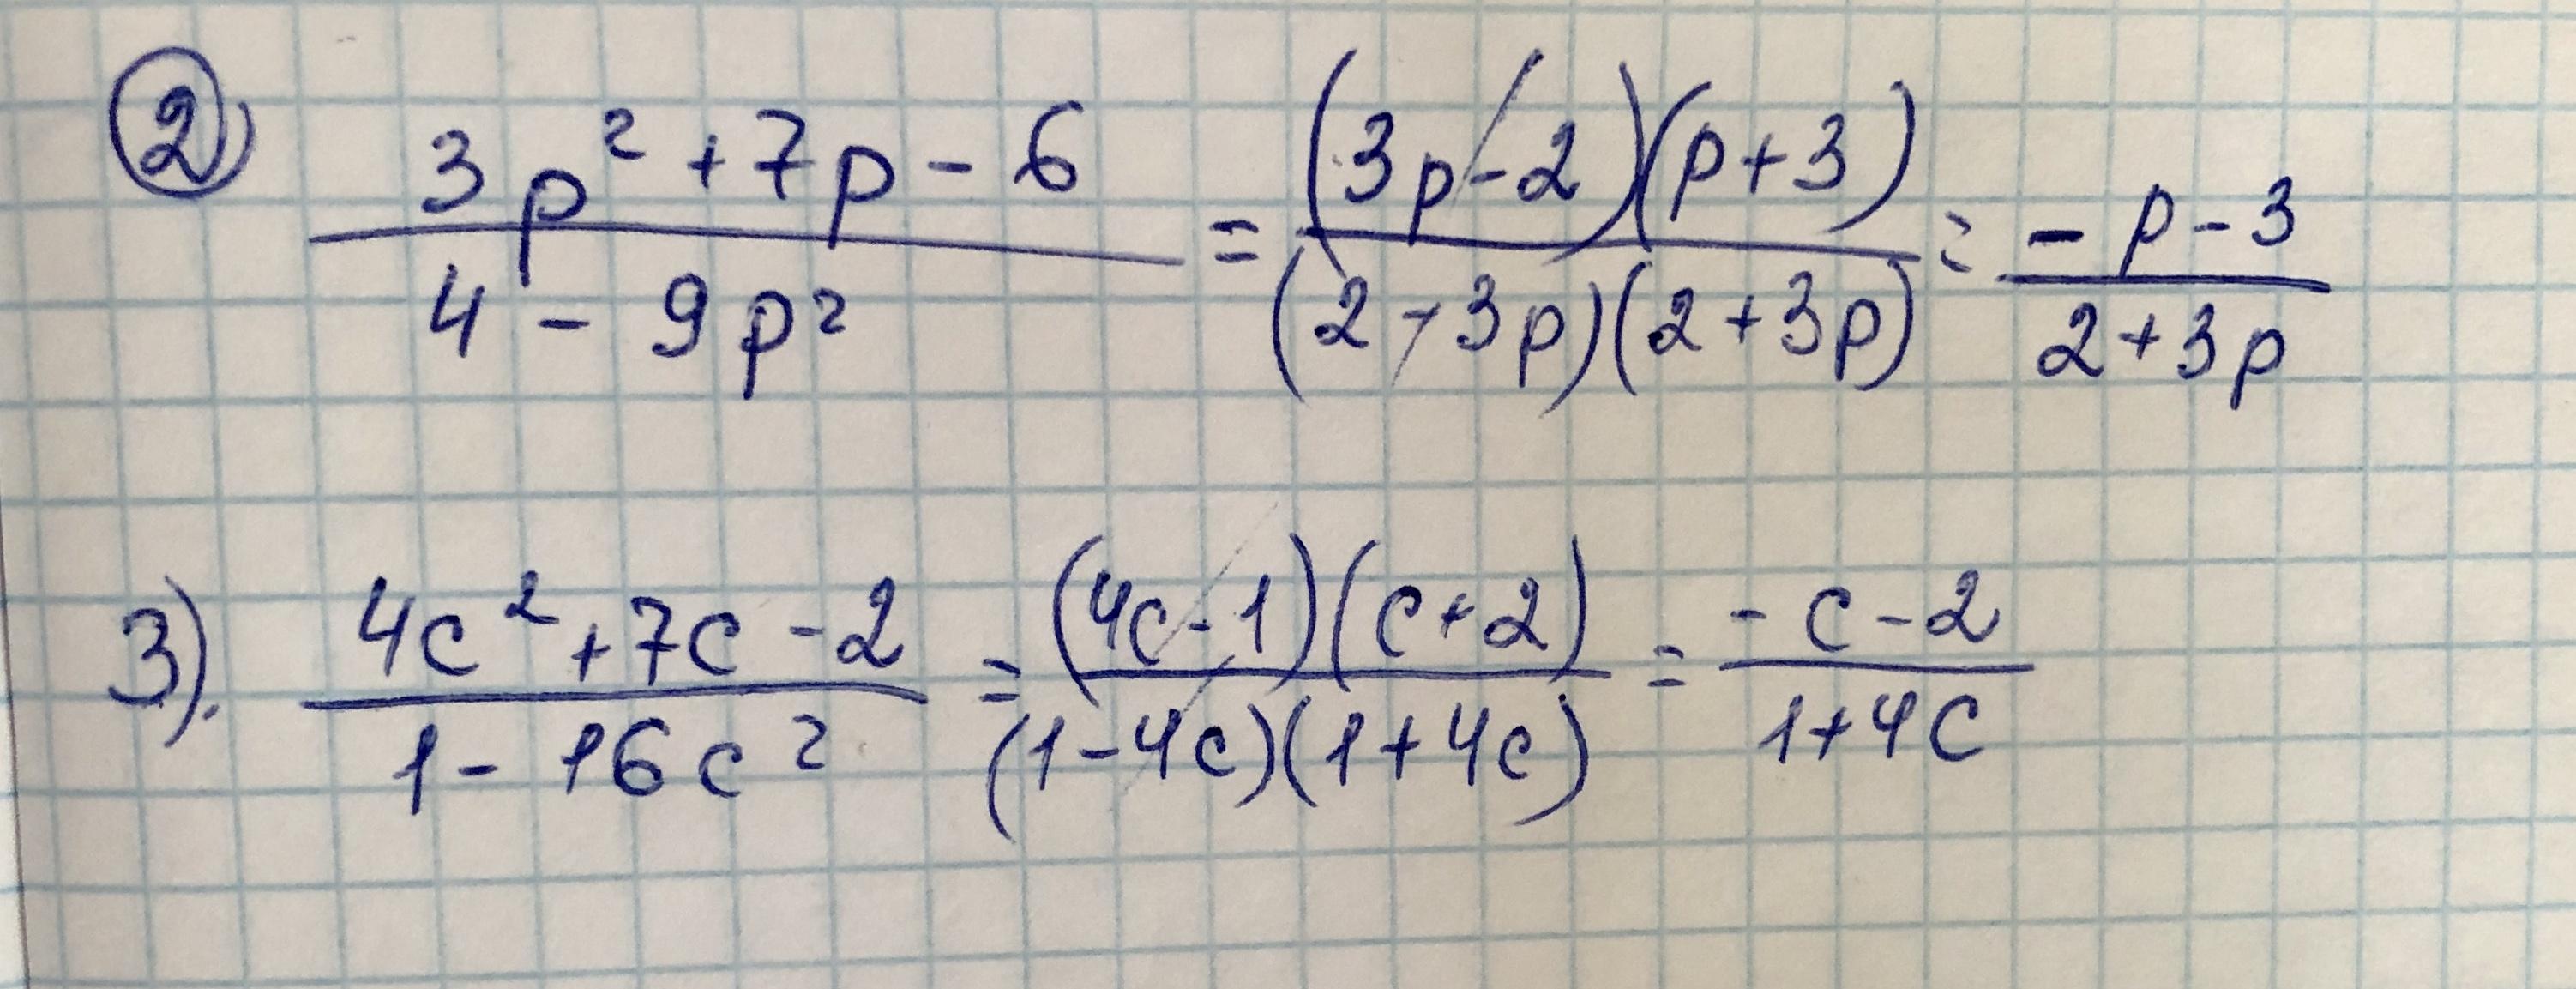 2) (3p² + 7p - 6)/(4 - 9p²) = ((3p - 2)(p + 3))/((2 - 3p)(2 + 3p)) = (- p - 3)/(2 + 3p)
3). (4c² + 7c - 2)/(1 - 16c²) = ((4c - 1)(c + 2))/((1 - 4c)(1 + 4c)) = (- c - 2)/(1 + 4c)